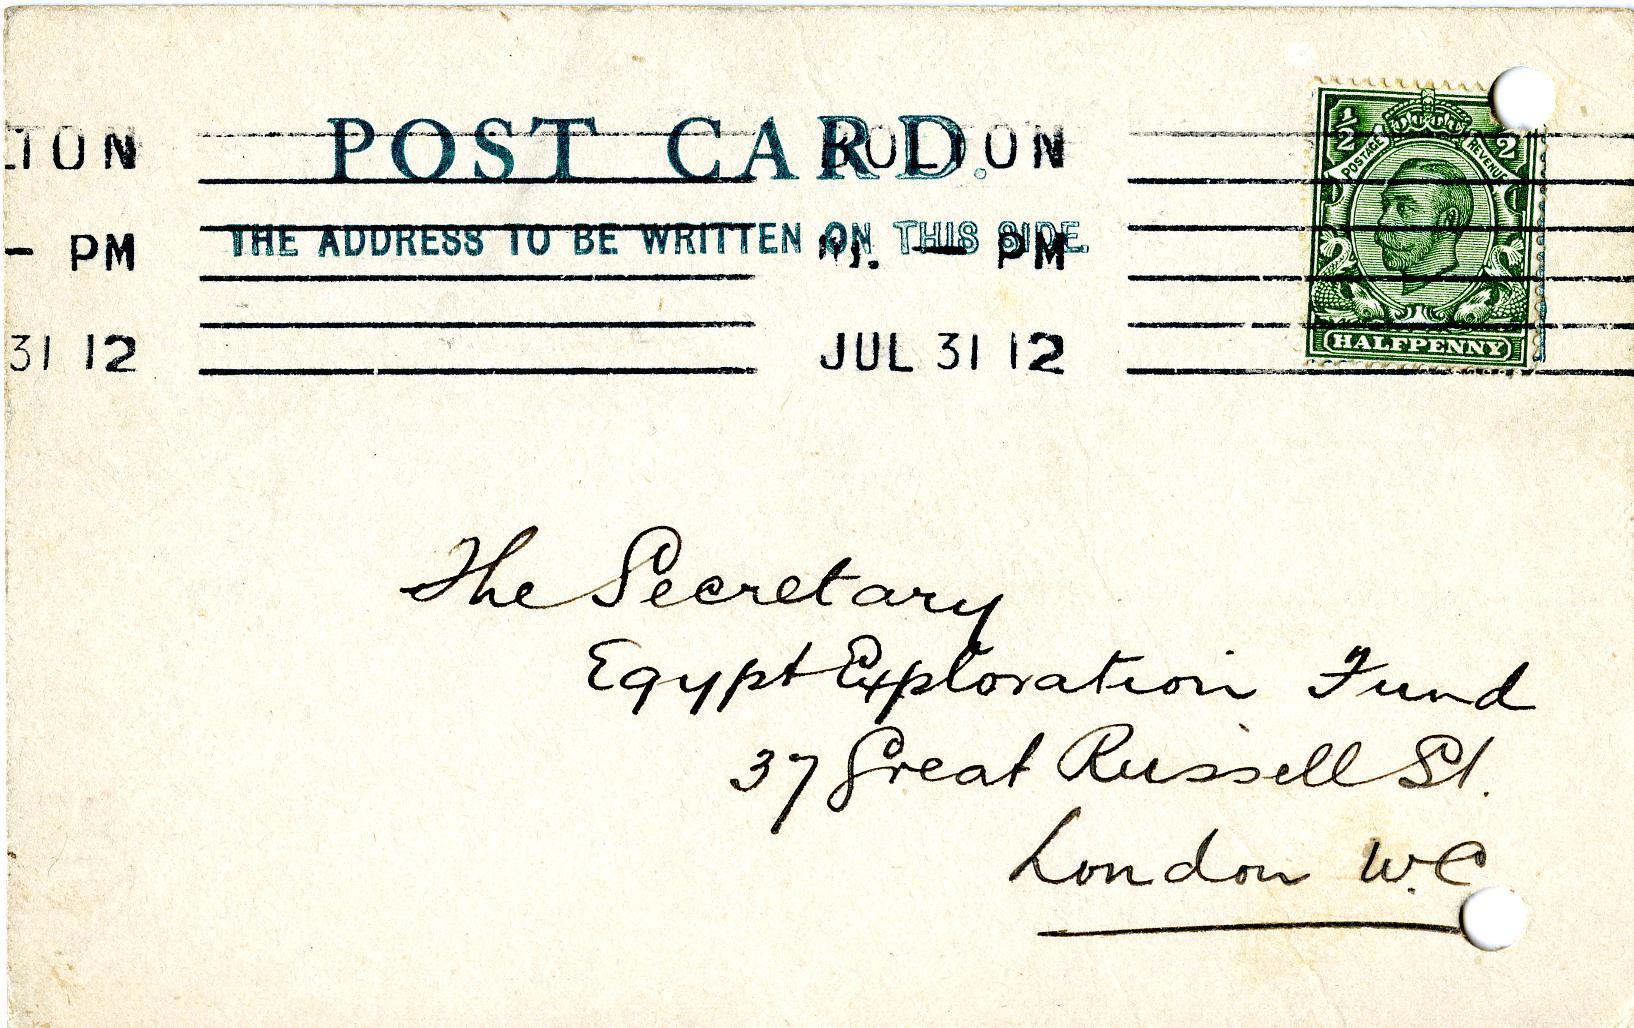 POST CARD.
THE ADDRESS TO BE WRITTEN ON THIS SIDE.
LTON
– PM
31 12
BOLTON
– PM
JUL 31 12
1/2 2
POSTAGE REVENUE
HALFPENNY
The Secretary
Egypt Exploration Fund
37 Great Russell St.
London W.C